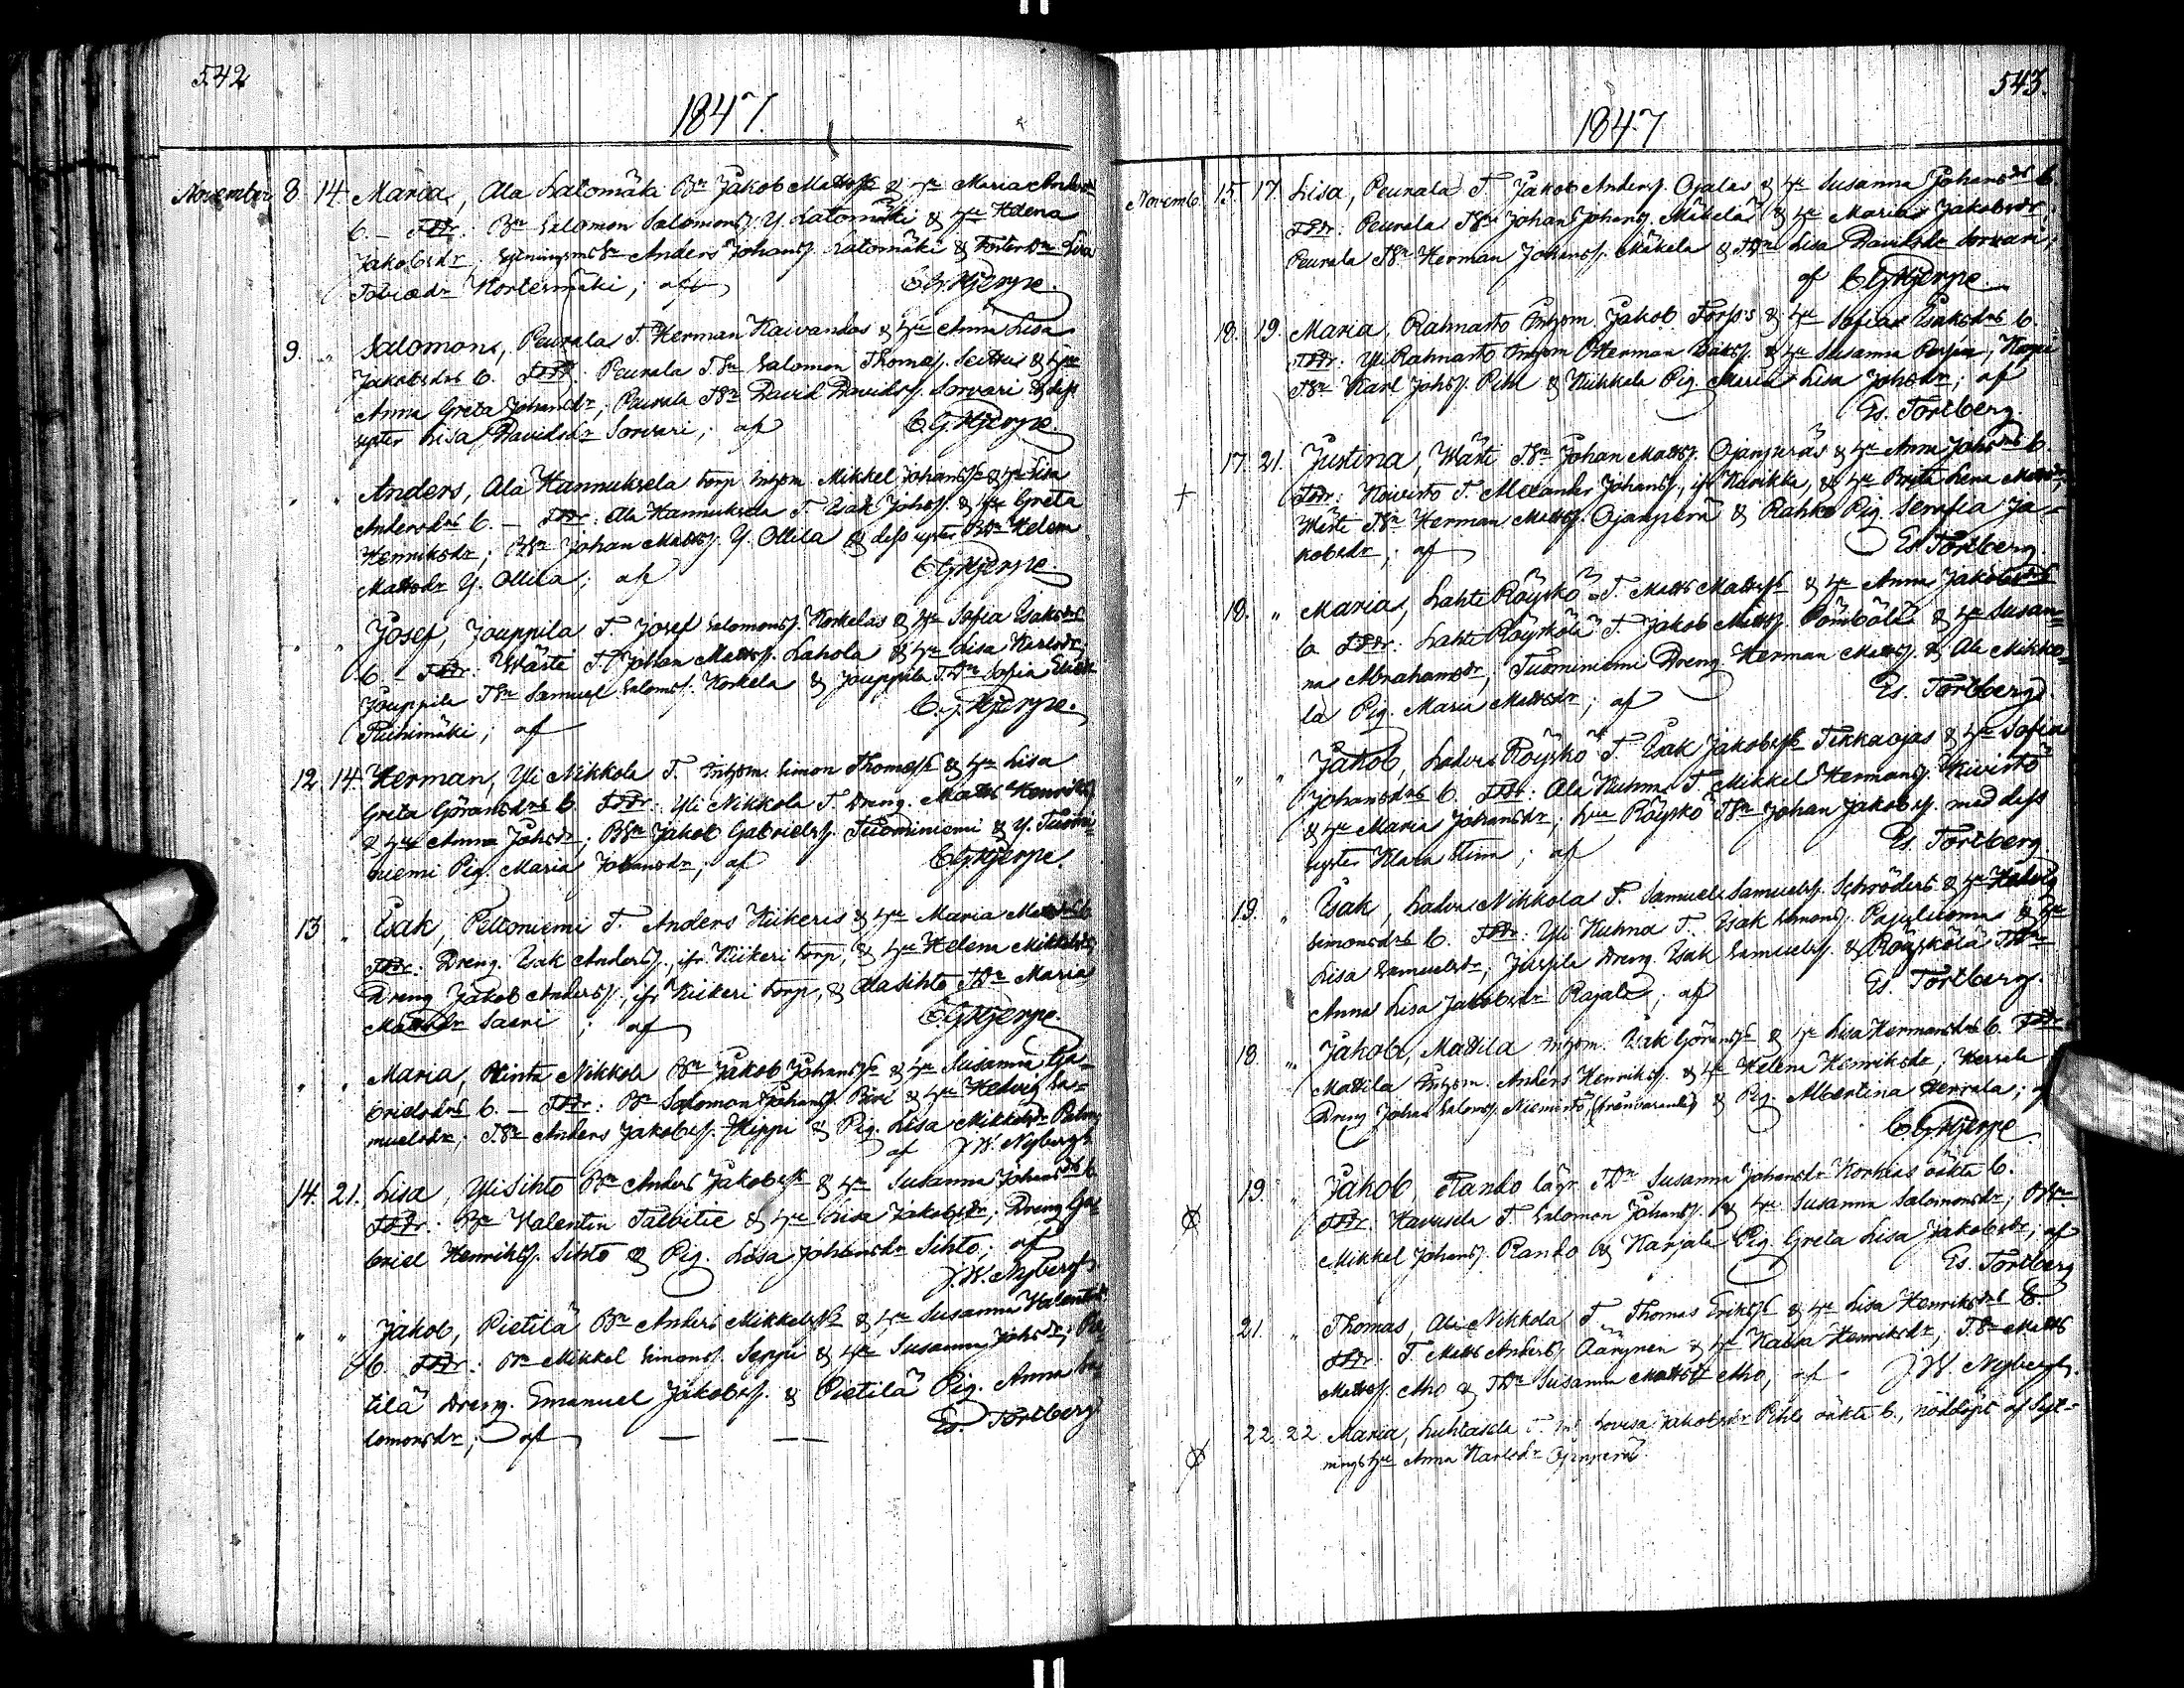 542
1847.
November 8. 14 Maria, Ala Latomäki Bn Jakob Mattss & hu Maria Anders-
b. – Fddr: Bn Salomon Salomonss. Y. Latomäki & hu Helena
Jakobsdr. SytningsmsSn Anders Johanss. Latomäki & FosterDn Lisa
Tobiædr Kortesmäki; af C.G. Hjerpe.
9. " Salomon, Peurala T. Herman Kaivandos & hu Anna Lisa
Jakobsdrs b. Fddr: Peurala T.Sn Salomon Thomass. & hu
Anna Greta Johansdr; Peurala TSn David Davidss. Sorvari & dess
syster Lisa Davidsdr Sorvari; af C.G. Hjerpe.
" " Anders, Ala Hannuksela torp Inhysm. Mikkel Johanss & hu Lisa
Andersdrs b. – Fddr: Ala Hannuksela T. Isak Johss. & hu Greta
Henriksdr; BSn Johan Mattss. Y. Ollila & dess syster BDr Helena
Mattsdr Y. Ollila; af C.G. Hjerpe.
" " Josef, Jouppila T. Josef Salomonss. Korkelas & hu Sofia Isaksdrs
b. – Fddr: Wäste T. Johan Mattss. Lahola & hu Lisa Karlsdr,
Jouppila TSn Samuel Saloms. Korkela & Jouppila T.Dr Sofia
Ruhimäki; af C.G. Hjerpe.
12. 14. Herman, Yli Nikkola T. Inhysm. Simon Thomass & hu Lisa
Greta Göransdrs b. Fddr: Yli Nikkola T. Dreng. Matts Henrikss
& hu Anna Johsdr; BSn Jakob Gabrielss. Tuominiemi & Y. Tuomi-
niemi Pig. Maria Johansdr; af C.G. Hjerpe.
13. " Isak, Peltoniemi T. Anders Kiikeris & hu Maria Mattsdrs b.
Fddr: Dreng. Isak Anderss., ifr. Kiikeri torp, & hu Helena Mikkelsdr,
Dreng Jakob Anderss., ifr Kiikeri torp, & Alasihto TDr Maria
Mattsdr Saari; af C.G. Hjerpe.
" " Maria, Rinta Nikkola Bn Jakob Johanss & hu Susanna Ga-
brielsdrs b. – Fddr: Bn Salomon Johanss. Piri & hu Hedvig Sa-
muelsdr; TSn Anders Jakobss. Hippi & Pig. Lisa Mikkelsdr
af J.W. Nybergh.
14. 21. Lisa, Ylisihto Bn Anders Jakobss & hu Susanna Johansdrs b.
Fddr: Bn Valentin Talvitie & hu Lisa Jakobsdr, Dreng Ga-
briel Henrikss. Sihto & Pig. Lisa Johansdr Sihto; af
J.W. Nybergh.
" " Jakob, Pietilä Bn Anders Mikkelss & hu Susanna Valentins-
b. Fddr: Bn Mikkel Simonss. Seppi & hu Susanna Johsdr; Pie-
tilä Dreng. Emanuel Jakobss. & Pietilä Pig. Anna Sa-
lomonsdr; af Es. Törtberg
543.
1847
Novemb. 15. 17. Lisa, Peurala T. Jakob Anderss. Ojalas & hu Susanna Johansdrs b.
Fddr: Peurala TSn Johan Johanss. Mäkelä & hu Maria Jakobsdr,
Peurala TSn Herman Johanss. Mäkelä & TDr Lisa Davidsdr Sorvari;
af C.G. Hjerpe.
18. 19. Maria, Rahnasto Inhysm. Jakob Forss's & hu Sofia Isaksdrs b.
Fddr: Yli Rahnasto Inhysm Otterman & hu Susanna
TSn Karl Johss. Pihl & Kiikkala Pig. Maria Lisa Johsdr; af
Es. Törtberg.
17. 21. Justina, Wäste T.Sn Johan Mattss. Ojanperäs & hu Anna Johsdrs b.
+ Fddr: Koivisto T. Alexander Johanss., ifr Karikka, & hu Brita Lena Mattsdr;
Wäste TSn Herman Mattss. Ojanperä & Rahko Pig. Serafia Ja-
kobsdr; af Es. Törtberg.
18. " Maria, Lahti Röyskö T. Matts Mattss & hu Anna Jakobsdrs
b. Fddr: Lahti Röyskölä T. Jakob Mattss. Pömbölä & hu Susan-
na Abrahamsdr, Tuominiemi Dreng. Herman Mattss. & Ala Mikko-
la Pig. Maria Mattsdr; af Es. Törtberg
" " Jakob, Röyskö T. Isak Jakobss Tekkaojas & hu Sofia
Johansdrs b. Fddr: Ala Kuhna T. Mikkel Hermanss. Kivistö
& hu Maria Johansdr; Röyskö TSn Johan Jakobss. med dess
syster Klara Stina; af Es. Törtberg.
19. " Isak, Nikkola T. Samuel Samuelss. Schröders & hu Hedvig
Simonsdrs b. Fddr: Yli Kuhna T. Isak Simonss. Pajuluoma & hu
Lisa Samuelsdr; Juspila Dreng. Isak Samuelss. & Röyskölä TDr
Anna Lisa Jakobsdr Rajala; af Es. Törtberg.
18. " Jakob, Mattila Inhysm. Isak Göranss & hu Lisa Hermansdrs b. Fddr
Mattila Inhysm. Anders Henrikss. & hu Helena Henriksdr; Herrala
Dreng Johan Saloms. Niemistö, (frånvarande) & Pig. Albertina Herrala; af
C.G. Hjerpe
19. " Jakob, Rando lägr TDr Susanna Johansdr Korhias oäkta b.
Fddr: Havusela T. Salomon Johanss. & hu Susanna Salomonsdr; BSn
Mikkel Johanss. Rando & Karjala Pig. Greta Lisa Jakobsdr; af
Es. Törtberg
21. " Thomas, Ala Nikkola T. Thomas Erikss & hu Lisa Henriksdrs b.
Fddr: T. Matts Anderss. Äärynen & hu Kaisa Henriksdr, T.Sn Matts
Mattss. Aho & TDr Susanna Mattsdr Aho, af J.W. Nybergh.
22. 22 Maria, Luhtasela T. Lovisa Jakobsdr Pihls oäkta b., nöddöpt af Syt-
ningshu Anna Karlsdr Ojanperä